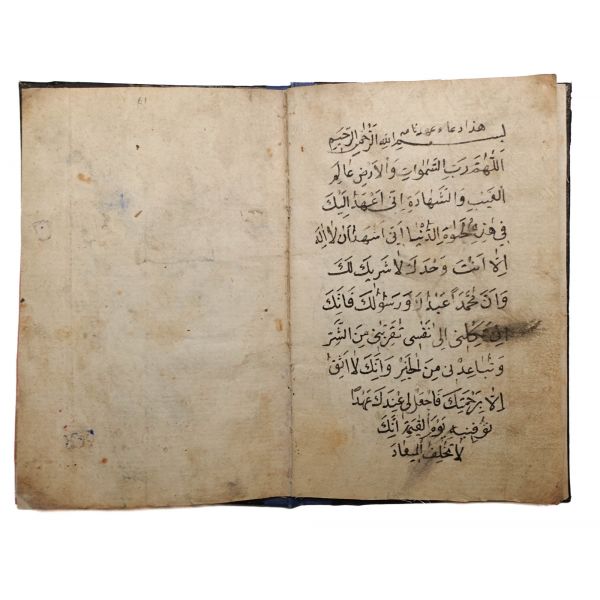 هذا دعاء عهدنامه
بسم الله الرحمن الرحيم
اَللّٰهُمَّ رَبَّ السَّمٰوَاتِ وَالْاَرْضِ عَالِمَ
الغَيْبِ وَالشَّهَادَةِ اِنّى اَعْهَدُ اِلَيْكَ
فى هٰذِهِ الحَيٰوةِ الدُّنْيَا اَنّى اَشْهَدُ اَنْ لَا اِلٰهَ
اِلَّا اَنْتَ وَحْدَكَ لَا شَرِيكَ لَكَ
وَاَنَّ مُحَمَّداً عَبْدُكَ وَرَسُولُكَ فَاِنَّكَ
اِنْ تَكِلْنى اِلى نَفْسى تُقَرِّبْنى مِنَ الشَّرِّ
وَتُبَاعِدْنى مِنَ الْخَيْرِ وَاَنّكَ لَا اَثِقُ
اِلَّا بِرَحْمَتِكَ فَاجْعَلْ لى عِنْدَكَ عَهْداً
تُوَفّنيهِ يَوْمَ القِيٰمَةِ اِنَّكَ
لَا تُخْلِفُ الْمِيعَادَ